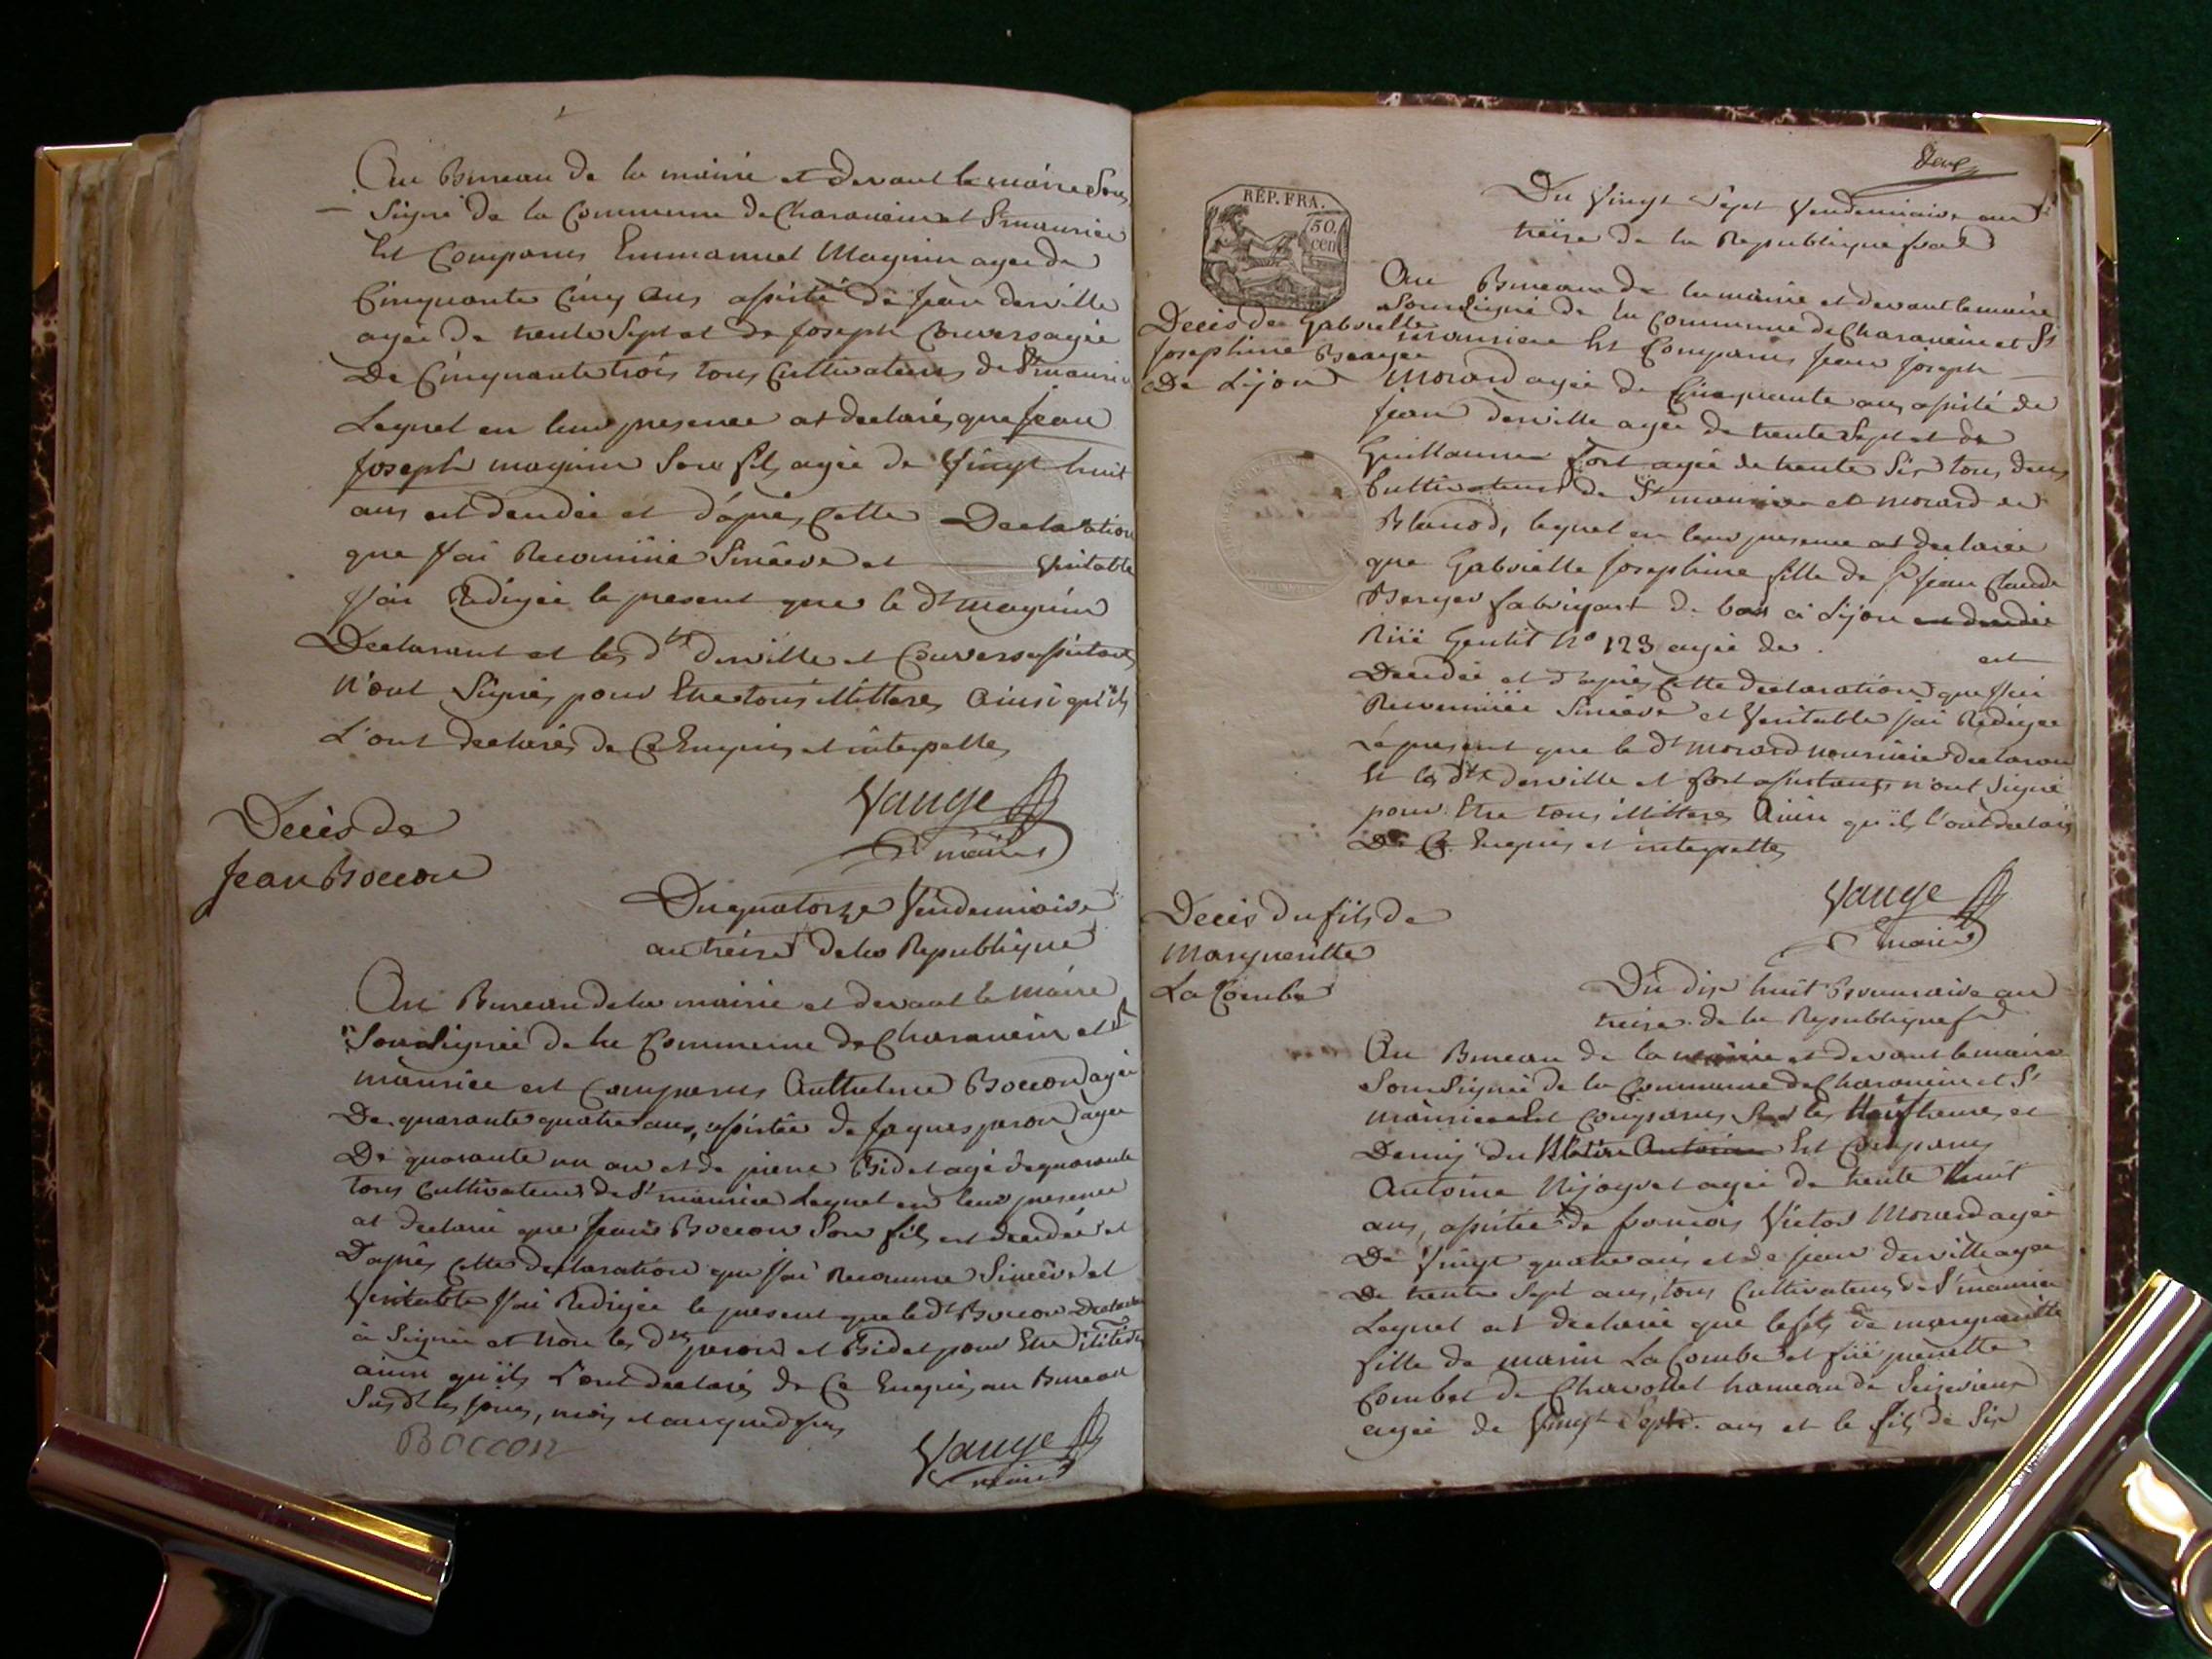 Au Bureau de la mairie et devant le maire Sous
Signé de la Commune de Charancin et St maurice
Est Comparus Emmanuel Magnin agée de
Cinquante Cinq ans assisté de jean derville
agée de trente Sept et de joseph Convers agée
De Cinquante trois tous Cultivateurs de St maurice
Lequel en leur presence at declarés que jean
joseph magnin Son fils agée de Vingt huit
ans est decedée et d'après Cette Declaration
que j'ai Reconnüe Sincere et Veritable
j'ai Redigée le present que le dt magnin
Declarant et les dts derville et Convers assistants
n'ont Signés pour Etre tous illitteres Ainsi qu'ils
L'ont declarés de Ce Enquis et interpelles
Vauge
maire
Decès de
Jean Boccon
Du quatorze Vendemiaire
an treize de la Republique
Au Bureau de la mairie et devant le Maire
Sousignée de la Commune de Charancin et St
maurice est Comparus Anthelme Boccon agée
De quarante quatre ans, assistée de jaques peron agée
De quarante un an et de pierre Bidet agé de quarante
tous Cultivateurs de St maurice Lequel en leur presence
at declaré que jean Boccon Son fils est decedée et
D'après Cette declaration que j'ai Reconnue Sincère et
Veritable j'ai Redigée le present que le dt Boccon Declarant
à Signée et non les dts peron et Bidet pour Etre
ainsi qu'ils L'ont declarés de Ce Enquis au Bureau
Susdt les jours, mois et an que dessus
Boccon
Vauge
maire
RÉP. FRA.
50.
cen
Du Vingt Sept Vendemiaire an
treize de la Republique
Decès de Gabrielle
josephine Berger
De Lijon
Au Bureau de la mairie et devant le maire
Soussigné de la Commune de Charancin et St
maurice Est Comparus jean joseph
Morard agée de Cinquante ans assisté de
jean derville agée de trente Sept et de
Guillaume fort agée de trente Six tous deux
Cultivateurs de St maurice et morard de
lequel en leur presence at declarée
que Gabrielle josephine fille de Sr jean Claude
Berger fabriquant de bas à Lijon est decedée
Rüe Gentil No 123 agée de est
Decedée et d'après Cette declaration que j'ai
Reconnüe Sincère et Veritable j'ai Redigée
Le present que le dt morard nourricier declarant
Et les dts derville et fort assistants n'ont Signé
pour Etre tous illitteres Ainsi qu'ils l'ont declarés
De Ce Enquis et interpelles
Vauge
maire
Decès du fils de
Margueritte
La Combe
Du dix huit Brumaire an
treize de la Republique
Au Bureau de la mairie et devant le maire
Sousignée de la Commune de Charancin et St
maurice Est Comparus Sur les heures et
Demij du Matin Antoine Est Comparus
Antoine Nijoguet agée de trente huit
ans, assistée de francois Victor Morard agée
De Vingt quatre ans et de jean derville agée
De trente Sept ans, tous Cultivateurs de St maurice
Lequel at declarée que le fils de margueritte
fille de marin La Combe et füe pierrette
Combet de hameau de
agée de Vingt Sept ans et le fils de Six